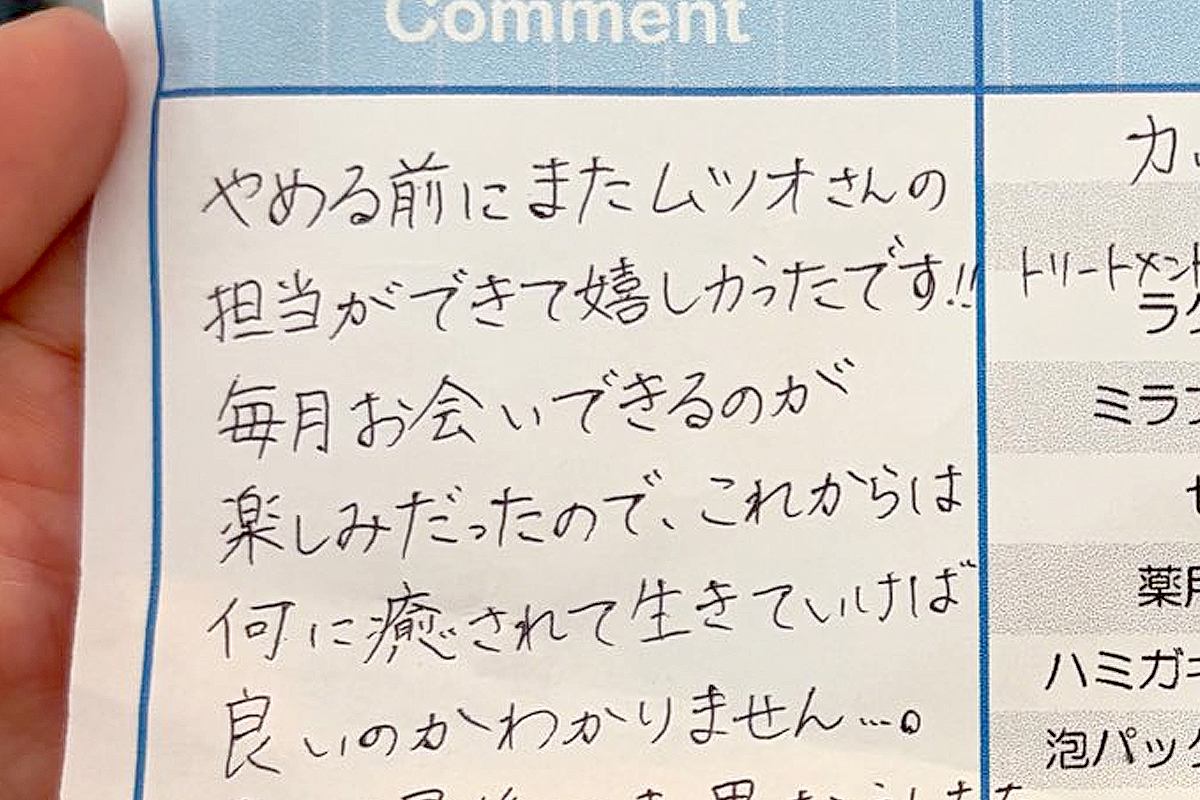 Comment
やめる前にまたムツオさんの
担当ができて嬉しかったです!!
毎月お会いできるのが
楽しみだったので、これからは
何に癒されて生きていけば
良いのかわかりません…。
カッ
トリートメント
ラク
ミラブ
薬用
ハミガキ
泡パック